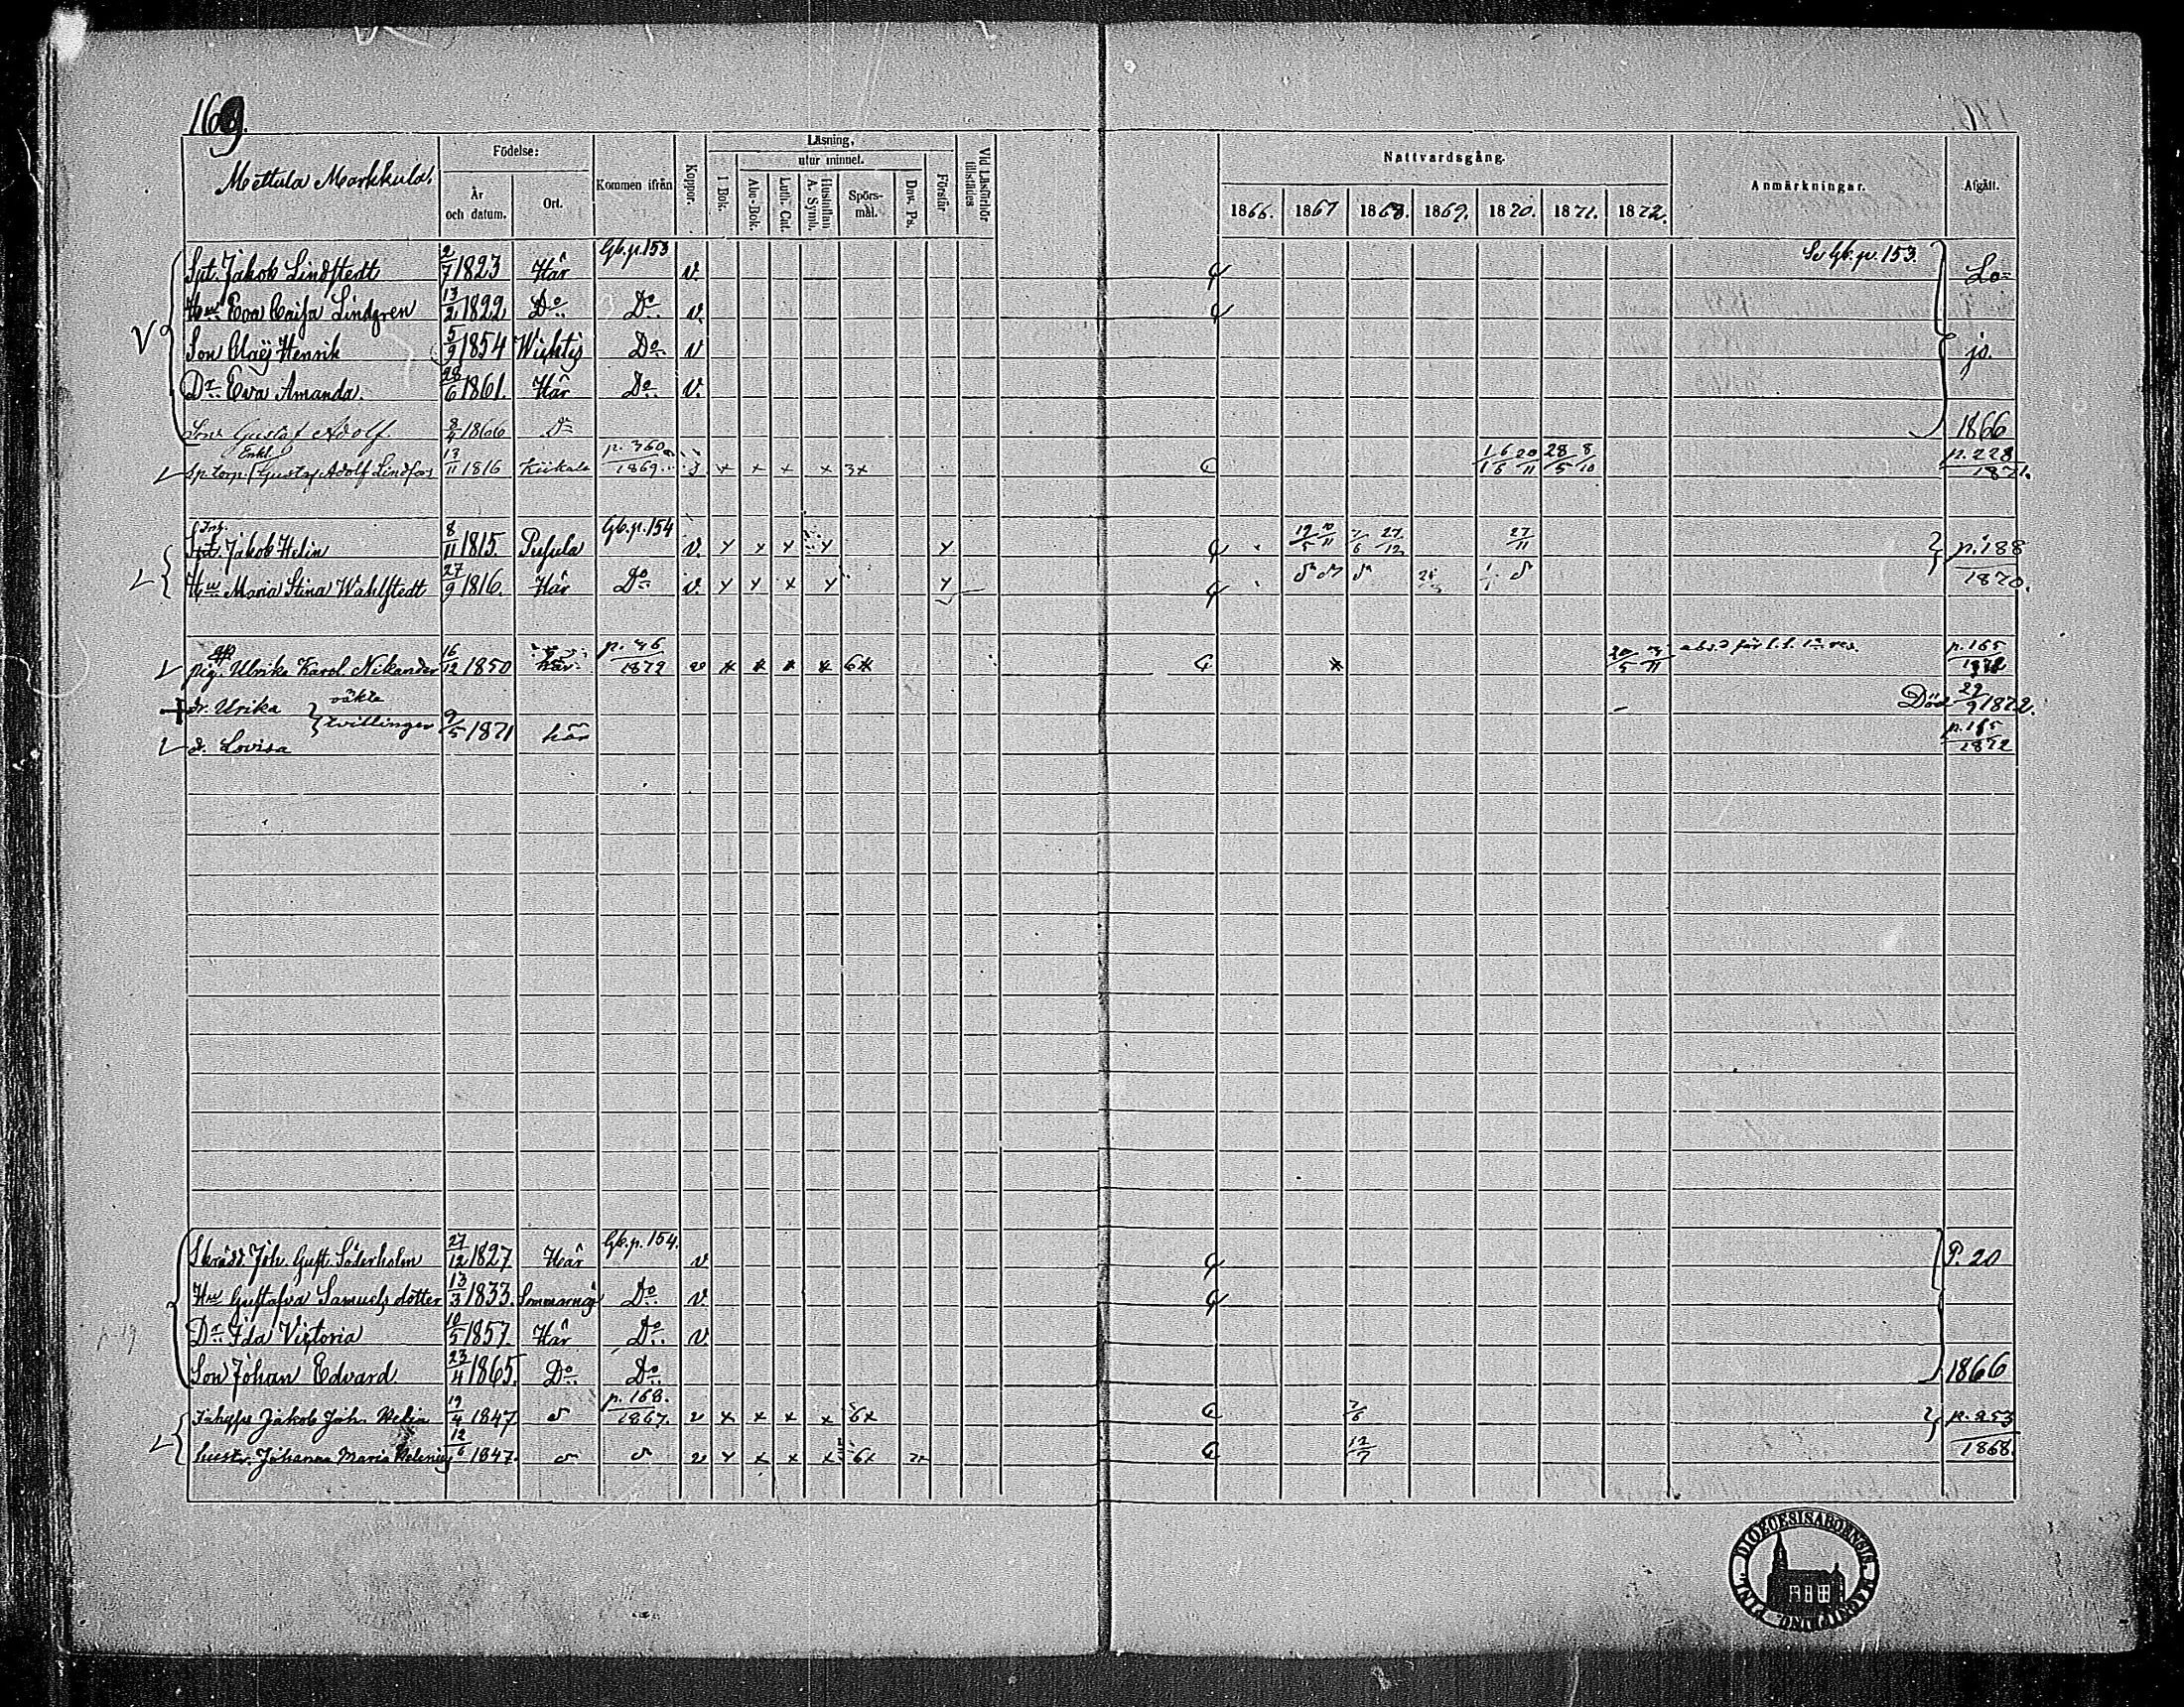 169.
Mettula Markkula.
Födelse:
År och datum.
Ort.
Kommen ifrån
Koppor.
Läsning,
I Bok.
utur minnet.
Abc-Bok.
Luth. Cat.
Hustaflan A. Symb.
Spörs-mål.
Dav. Ps.
Förstår
Vid Läsförhör tillstädes
Nattvardsgång.
1866. 1867 1868. 1869. 1870. 1871. 1872.
Anmärkningar.
Afgått.
Spt. Jakob Lindstedt 2/7 1823 Här Gb.p.153 v. Se Gb.p.153. Lo-
Hu Eva Caisa Lindgren 13/2 1822 Do Do v.
Son Claës Henrik 5/9 1854 Wichtis Do v jo.
Dr Eva Amanda. 28/6 1861. Här Do v.
Son Gustaf Adolf. 8/4 1866 Do 1866
Enkl. Sp.torp. Gustaf Adolf Lindfors 13/11 1816 Kiikala p. 360 1869. 3 x x x x 3x 20/11 28/5 8/10 p. 228 1871.
Inh. Spt. Jakob Helin 8/11 1815. Pusula Gb.p.154 v. x x x x x 27/12 27/11 p. 188
Hu Maria Stina Wahlstedt 27/9 1816. Här Do v. x x x x x 1870.
pig. Ulrika Karol. Nikander 16/12 1850 här p. 46 1872 v x x x x 6x x p. 165 1872
dr. Urika oäkta Död 29/9 1872.
tvillingar 9/5 1871 här
d. Lovisa p. 165 1872
Skrädd. Joh. Gust. Söderholm 27/12 1827 Här Gb.p.154. v P. 20
Hu Gustafva Samuelsdotter 13/3 1833. Sommarnäs Do v.
Dr Ida Victoria 10/5 1857. Här Do v.
Son Johan Edvard 23/4 1865. Do Do 1866
Jakob Joh. Helin 19/4 1847 p. 168. 1867. v x x x x 6x 7/6 p. 253
hustr. Johanna Maria Helenius 12/6 1847. v x x x x 6x 12/7 1868.
p. 19
DIOECESIS ABOENSIS